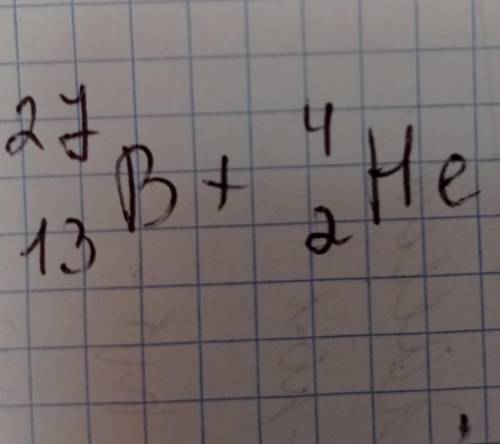 ²⁷₁₃B + ⁴₂He